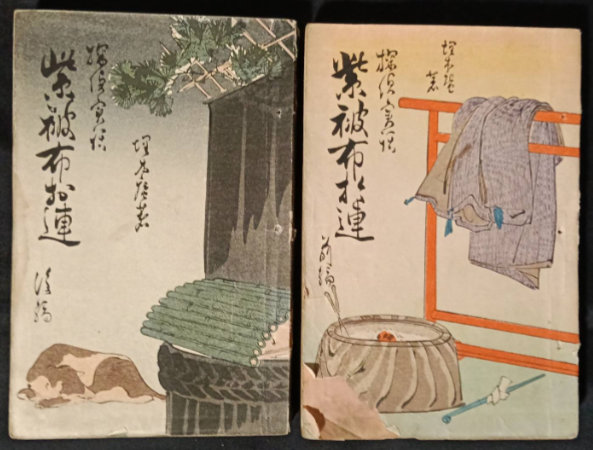 探偵実話
紫被布お連
埋木庵著
後編
探偵実話
紫被布お連
埋木庵著
前編